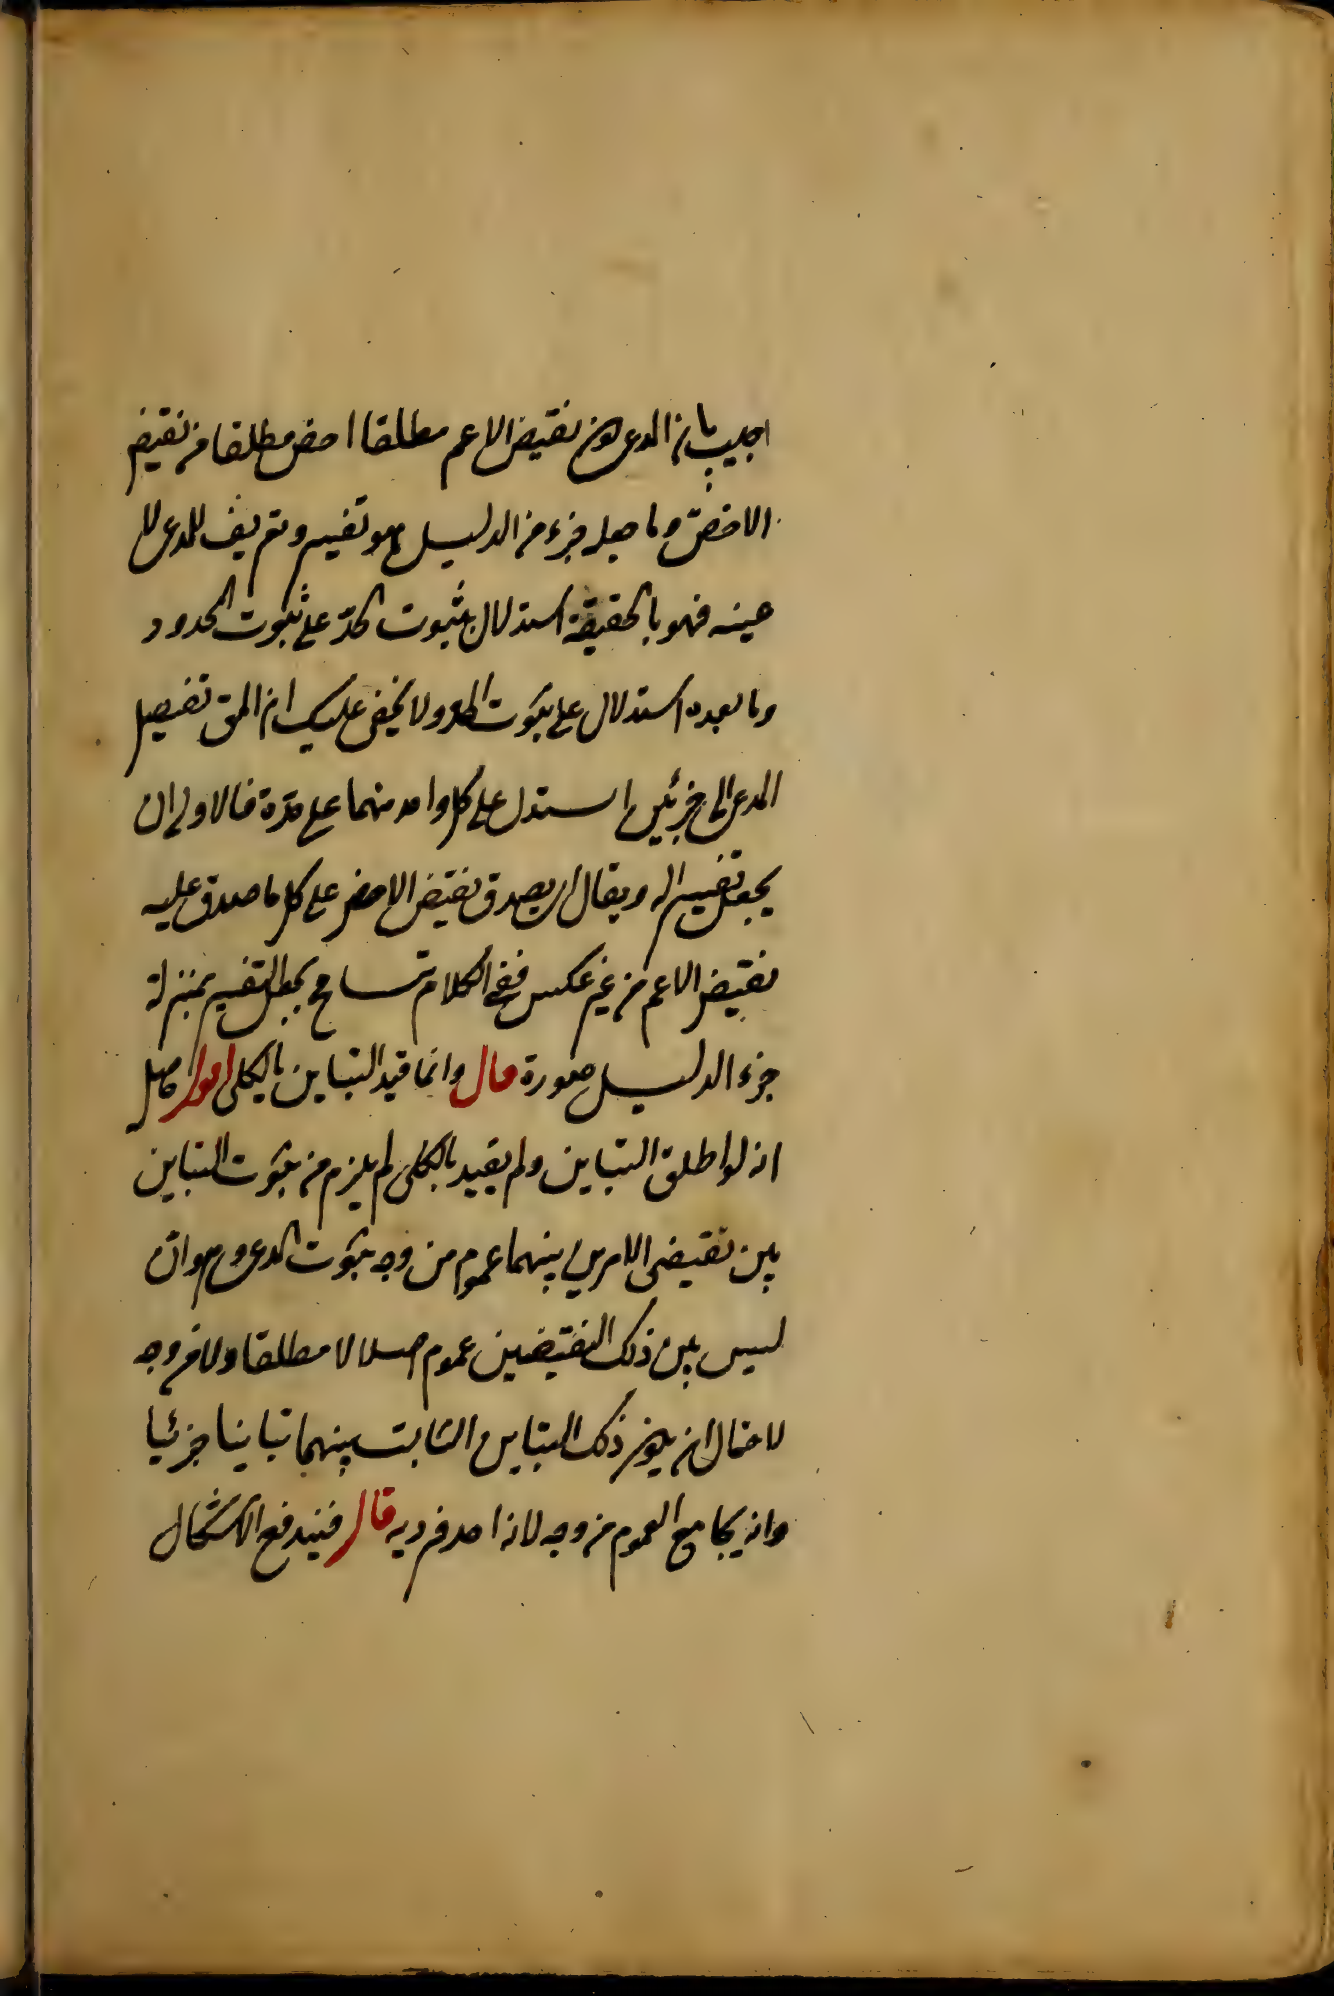 اجيب بان المدعى كون نقيض الاعم مطلقا اخص مطلقا من نقيض
الاخص وما جعله جزء من الدليل هو تفسير وتعريف للمدعى لا
عينه فهو بالحقيقة استدلال بثبوت الحد على ثبوت المحدود
وما بعده استدلال على ثبوت الحد ولا يخفى عليك ان المق تفصيل
المدعى الى جزئين استدل على كل واحد منهما على حدة فالاولى ان
يجعل تفسيرا له ويقال اى يصدق نقيض الاخص على كل ما صدق عليه
نقيض الاعم من غير عكس ففي الكلام تسامح بجعل التفسير بمنزلة
جزء الدليل صورة قال وانما قيد التباين بالكلى اقول حاصله
انه لو اطلق التباين ولم يقيد بالكلى لم يلزم من ثبوت التباين
بين نقيضى الامرين بينهما عموم من وجه ثبوت المدعى وهو ان
ليس بين ذلك النقيضين عموم اصلا لا مطلقا ولا من وجه
لاحتمال ان يكون ذلك التباين الثابت بينهما تباينا جزئيا
وانه يجامع العموم من وجه لانه احد فرديه قال فيندفع الاشكال